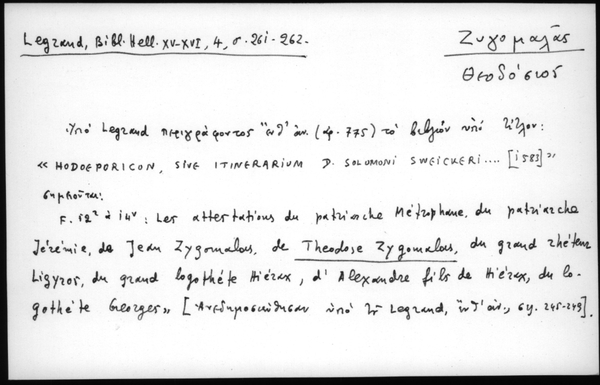 Legrand, Bibl. Hell. XV-XVI, 4, σ. 261-262.
Ζυγομαλᾶς
Θεοδόσιος
Ὑπό Legrand περιγράφοντος "ἔνθ' ἀν. (ἀρ. 775) τό βιβλίον ὑπό τίτλον:
« HODOEPORICON, SIVE ITINERARIUM D. SOLOMONI SWEICKERI.... [1583]»
σημειοῦται:
F. 12 à 14v : Les attestations du patriarche Métrophane, du patriarche
Jérémie, de Jean Zygomalas, de Theodose Zygomalas, du grand rhéteur
Ligyros, du grand logothéte Hiérax, d' Alexandre fils de Hiérax, du lo-
gothéte Georges» [Ἀνεδημοσιεύθησαν ὑπό τοῦ Legrand, ἔνθ' ἀν., σσ. 245-249].